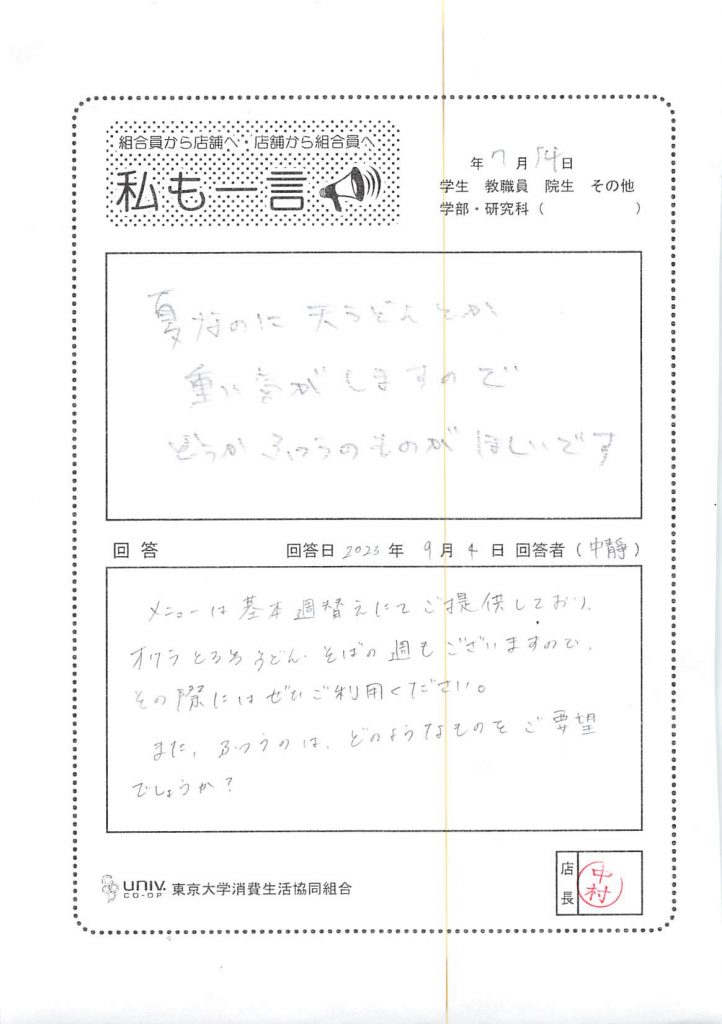 組合員から店舗へ・店舗から組合員へ
私も一言
年 7 月 14 日
学生 教職員 院生 その他
学部・研究科( )
夏なのに 天うどんとか
重い気がしますので
どうか ふつうのものが ほしいです
回答 回答日 2023 年 9 月 4 日 回答者(中靜)
メニューは基本週替えにてご提供しており、
オクラとろろうどん・そばの週もございますので、
その際にはぜひご利用ください。
また、ふつうのは、どのようなものをご要望
でしょうか?
UNIV. CO-OP 東京大学消費生活協同組合
店長 中村